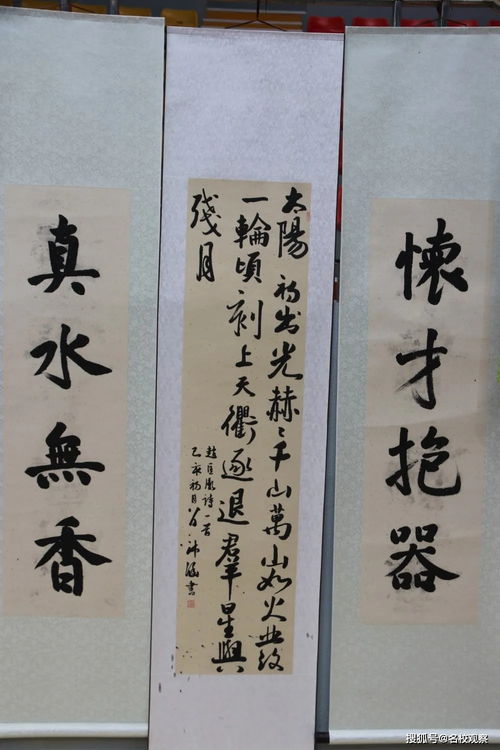 懷才抱器
太陽初出光赫〻千山萬山如火發
一輪頃刻上天衢逐退羣星與
殘月
趙匡胤詩一首
真水無香
搜狐号@名校观察